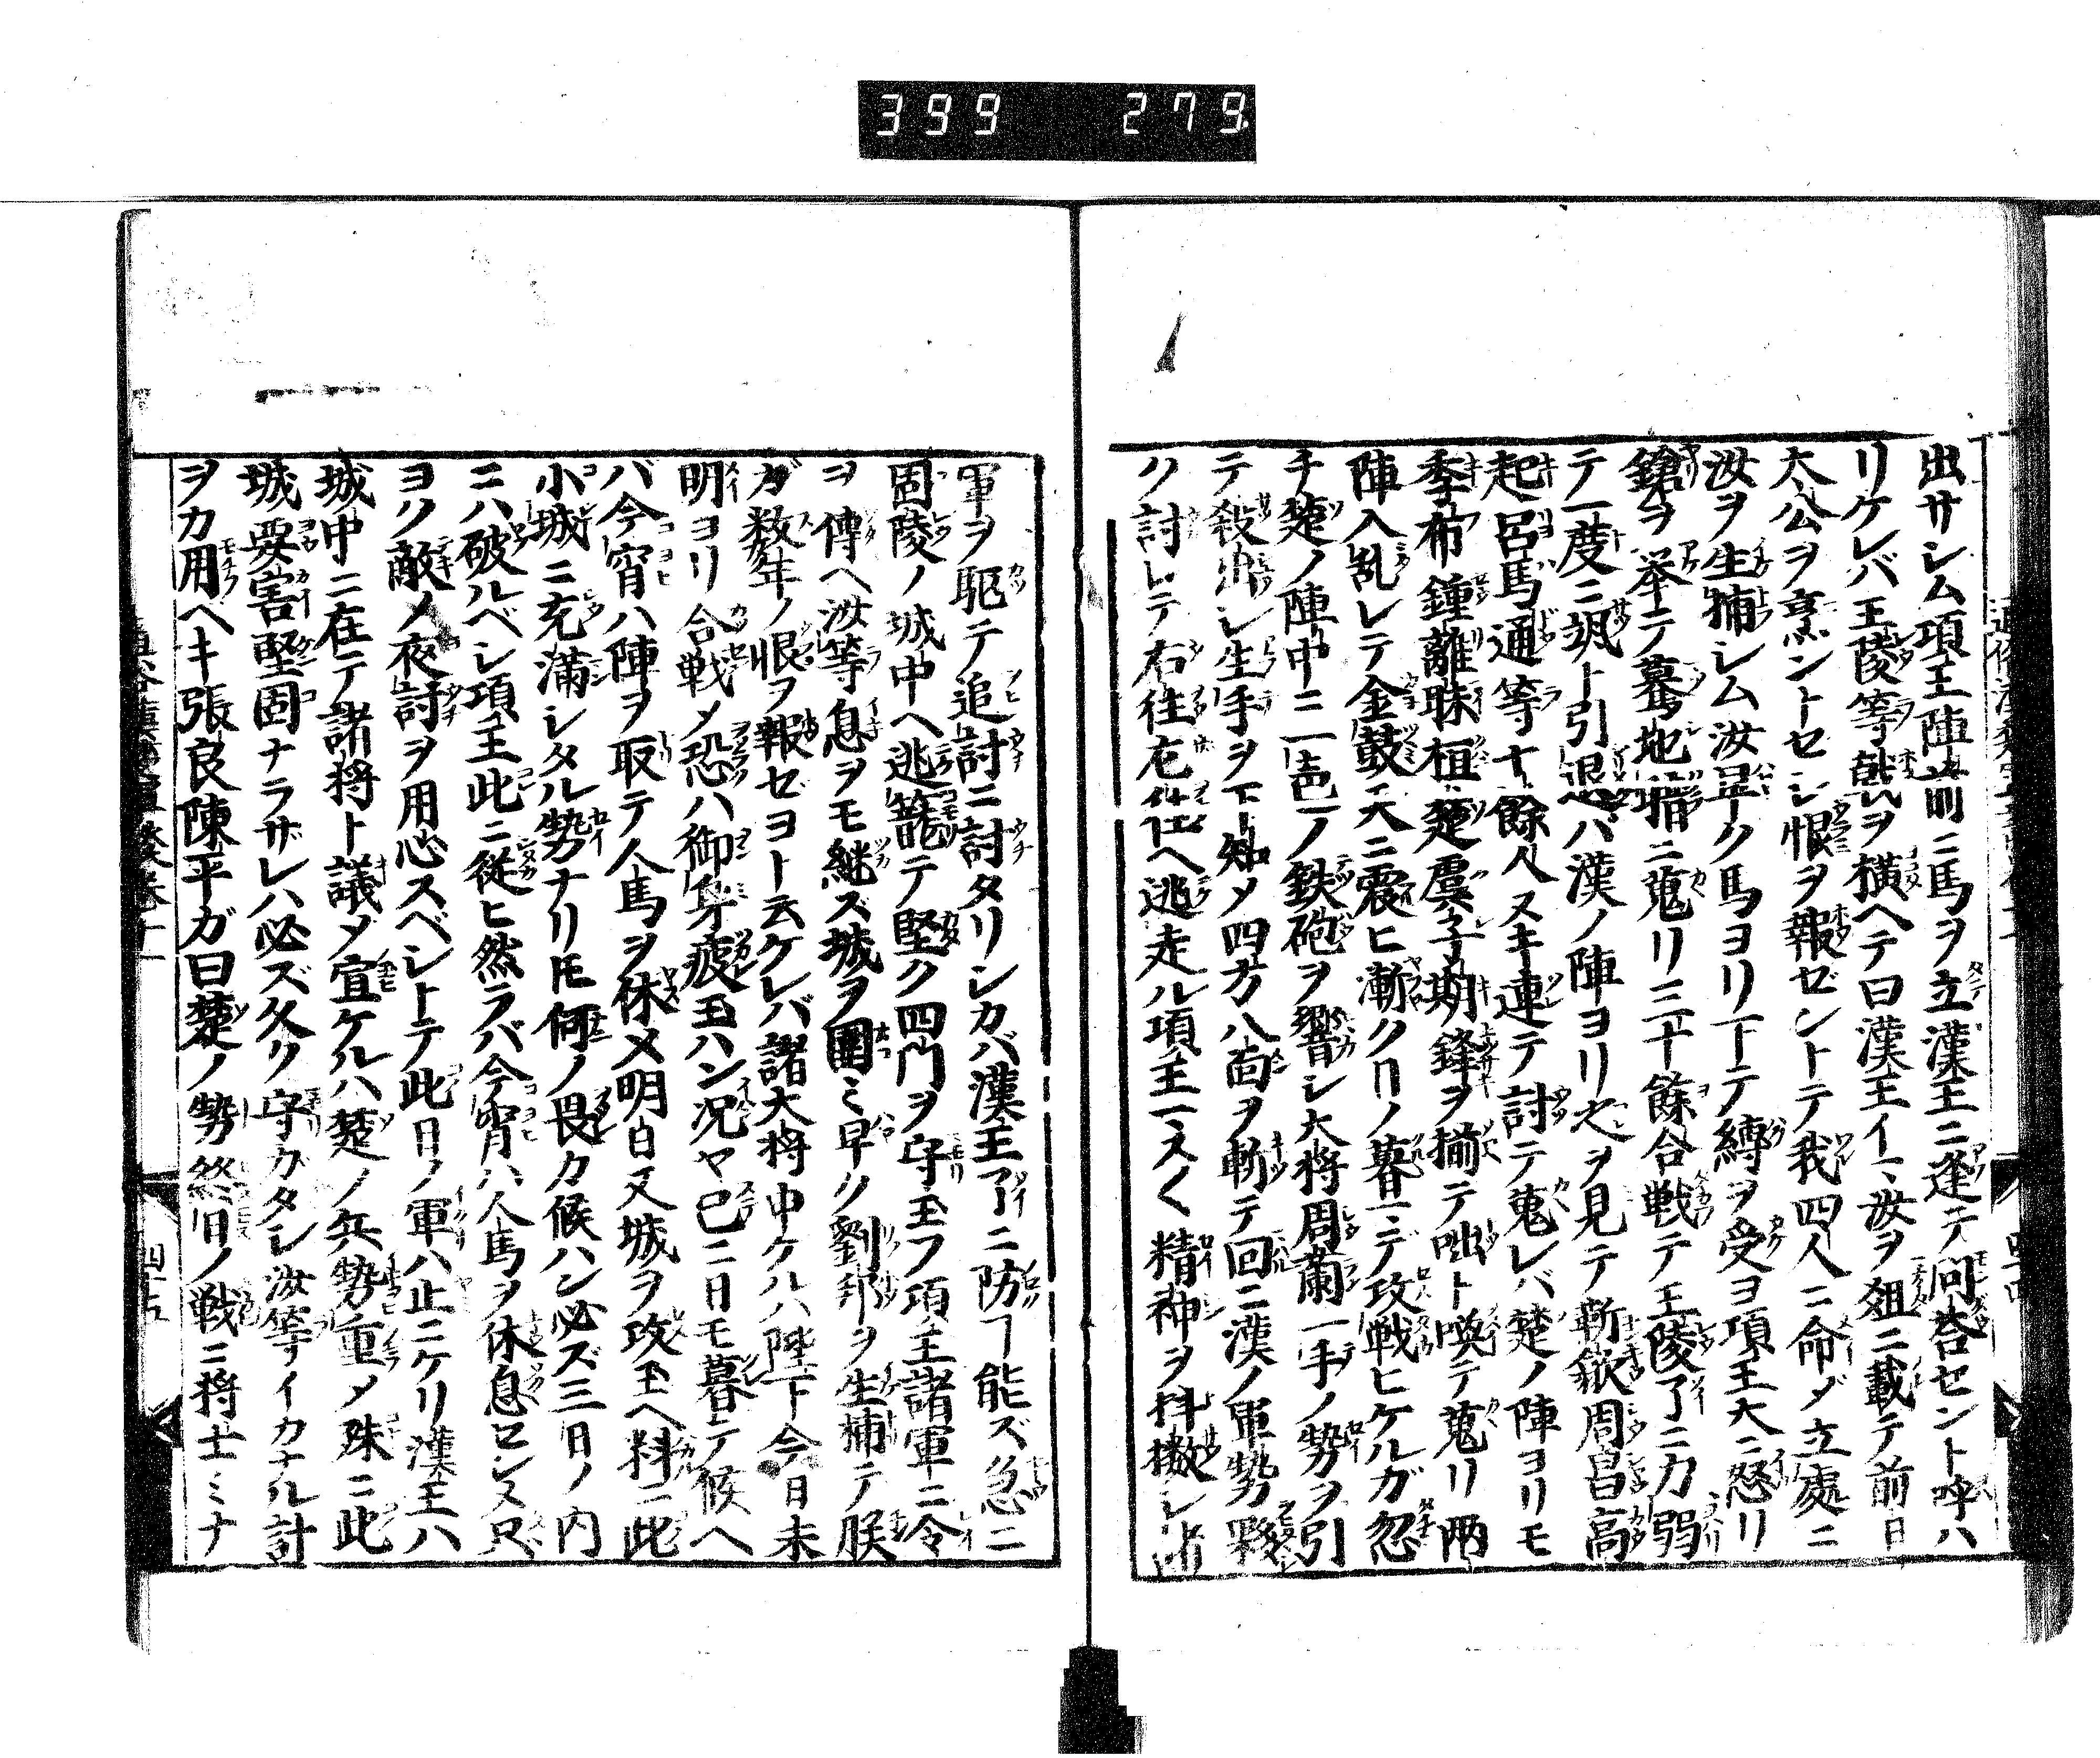 399 279
出サシム項王陣前ニ馬ヲ立漢王ニ逢テ問荅セント呼ハ
リケレバ王陵等戟ヲ横ヘテ曰漢王イマ汝ヲ俎ニ載テ前日
大公ヲ烹ントセシ恨ヲ報ゼントテ我四人ニ命ジ立處ニ
汝ヲ生捕シム汝早ク馬ヨリ下テ縛ヲ受ヨ項王大ニ怒リ
鎗ヲ挙テ驀地ニ蒐リ三十餘合戦テ王陵了ニ力弱
テ一度ニ颯ト引退ヘバ漢ノ陣ヨリ之ヲ見テ靳歙周昌高
起呂馬通等十餘人ヌキ連テ討テ蒐レバ楚ノ陣ヨリモ
季布鍾離昧桓楚虞子期鋒ヲ揃テ咄ト喚テ蒐リ両
陣入乱レテ金鼓天ニ震ヒ漸ク日ノ暮マデ攻戦ヒケルガ忽
チ楚ノ陣中ニ一色ノ鉄砲ヲ響シ大将周蘭一手ノ勢ヲ引
テ殺出シ生手ヲ下知メ四方八面ヲ斬テ回ニ漢ノ軍勢夥
ク討レテ右往左往ヘ逃走ル項王マスく精神ヲ抖擻シ諸
軍ヲ駆テ追討ニ討タリシカバ漢王了ニ防ヿ能ズ急ニ
固陵ノ城中ヘ逃籠テ堅ク四門ヲ守玉フ項王諸軍ニ令
ヲ傳ヘ汝等息ヲモ継ズ城ヲ圍ミ早ク劉邦ヲ生捕テ朕
ガ数年ノ恨ヲ報ゼヨト云ケレバ諸大将申ケルハ陛下今日未
明ヨリ合戦メ恐ハ御身疲玉ハン况ヤ已ニ日モ暮テ候ヘ
バ今宵ハ陣ヲ取テ人馬ヲ休メ明日又城ヲ攻玉ヘ料ニ此
小城ニ充満シタル勢ナリ𪜈何ノ畏カ候ハン必ズ三日ノ内
ニハ破ルベシ項王此ニ従ヒ然ラバ今宵ハ人馬ヲ休息センス只
ヨク敵ノ夜討ヲ用心スベシトテ此日ノ軍ハ止ニケリ漢王ハ
城中ニ在テ諸将ト議メ宣ケルハ楚ノ兵勢重メ殊ニ此
城要害堅固ナラザレハ必ズ久ク守ガタシ汝等イカナル計
ヲカ用ベキ張良陳平ガ曰楚ノ勢終日ノ戦ニ将士ミナ